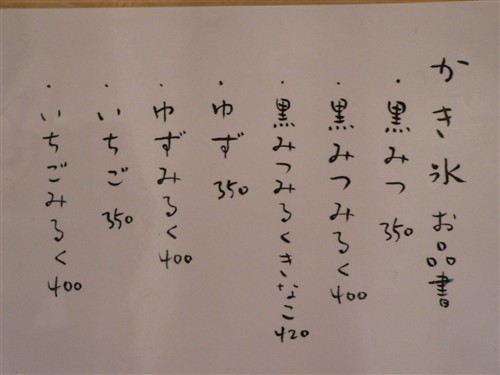 かき氷 お品書
・黒みつ 350
・黒みつみるく 400
・黒みつみるくきなこ 420
・ゆず 350
・ゆずみるく 400
・いちご 350
・いちごみるく 400